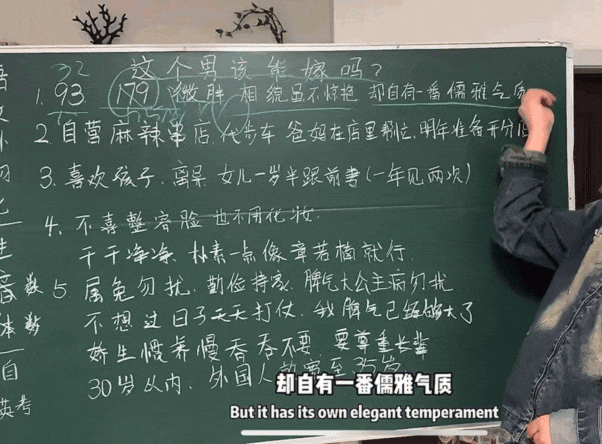 32
这个男该能嫁吗?
1. 93. 179 微胖 相貌虽不惊艳 却自有一番儒雅气质
2. 自营麻辣串店, 代步车 爸妈在店里帮忙, 明年准备开分店
3. 喜欢孩子. 离异 女儿一岁半跟前妻(一年见两次)
4. 不喜整容脸 也不用化妆.
干干净净 朴素一点像章若楠就行.
5. 属兔勿扰, 勤俭持家, 脾气大公主病勿扰
不想过日子天天打仗, 我脾气已经够大了
娇生惯养慢吞吞不要, 要尊重长辈
30岁以内, 外国人放宽至35岁
却自有一番儒雅气质
But it has its own elegant temperament
语
生
数
体
数
自
英考